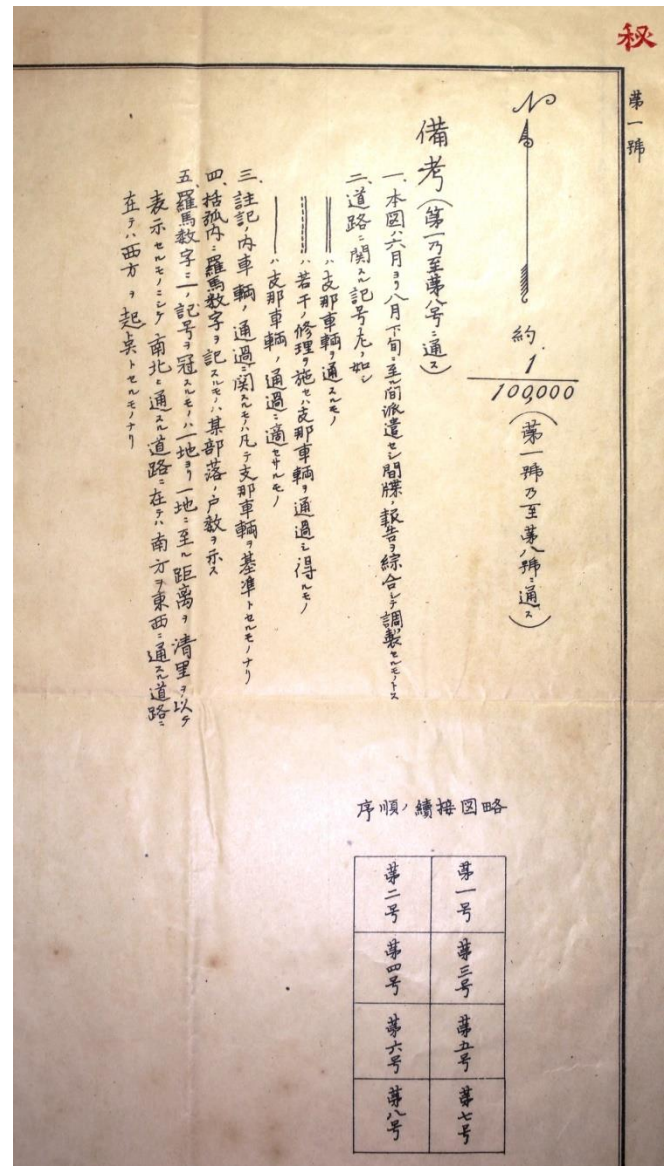 秘
第一號
N
約 1/100,000 (第一號乃至第八號ニ通ス)
備考(第一乃至第八号ニ通ス)
一、本図ハ六月ヨリ八月下旬ニ至ル間派遣セシ間牒ノ報告ヲ綜合シテ調製セルモノトス
二、道路ニ関スル記号左ノ如シ
ハ支那車輌ヲ通スルモノ
ハ若干ノ修理ヲ施セハ支那車輌ヲ通過シ得ルモノ
ハ支那車輌ノ通過ニ適セサルモノ
三、註記ノ内車輌ノ通過ニ関スルモノハ凡テ支那車輌ヲ基準トセルモノナリ
四、括弧内ニ羅馬数字ヲ記スルモノハ某部落ノ戸数ヲ示ス
五、羅馬数字ニ一ノ記号ヲ冠スルモノハ一地ヨリ一地ニ至ル距離ヲ清里ヲ以テ
表示セルモノニシテ南北ニ通スル道路ニ在テハ南方ヲ東西ニ通スル道路ニ
在テハ西方ヲ起点トセルモノナリ
序順ノ續接図略
第一号
第二号
第三号
第四号
第五号
第六号
第七号
第八号